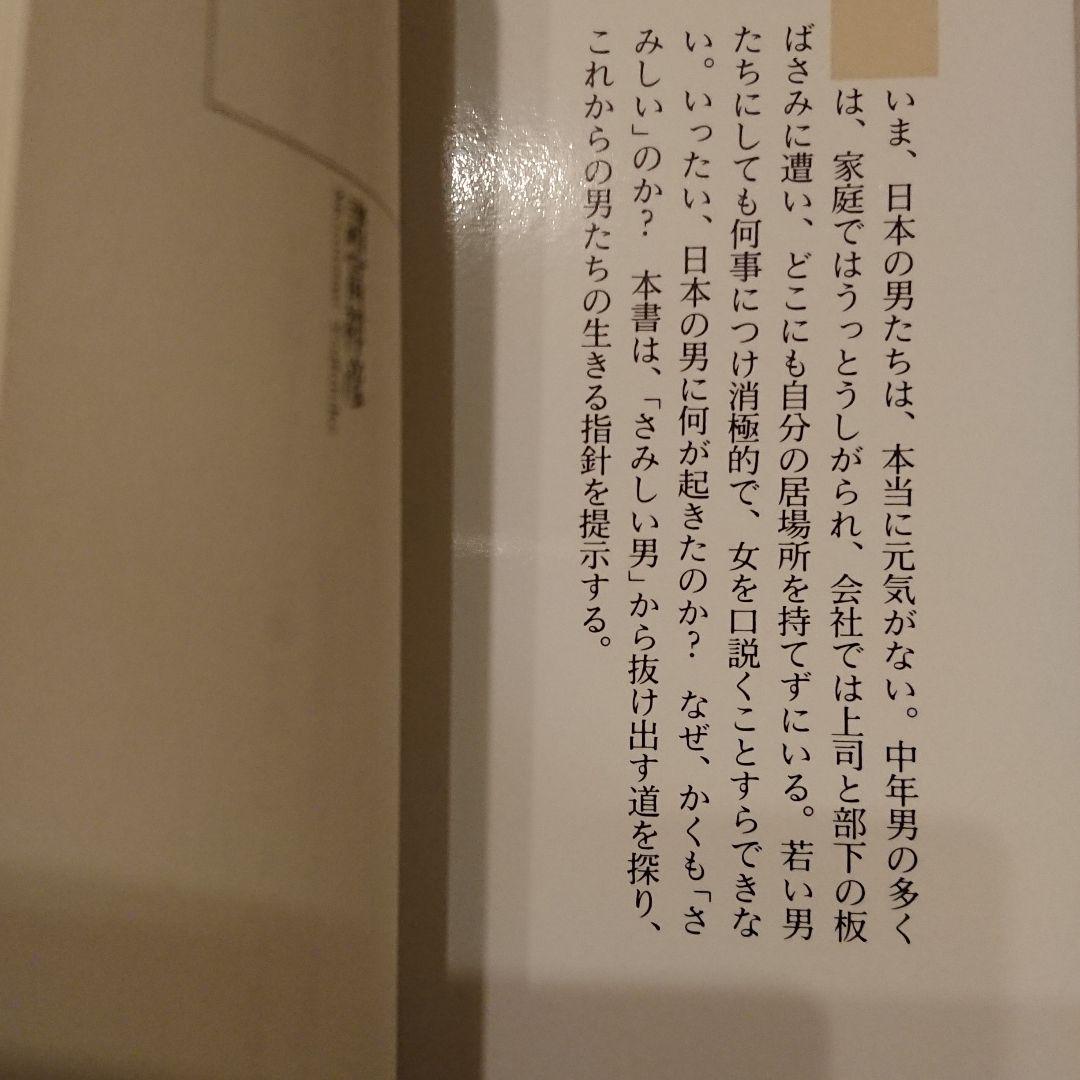 いま、日本の男たちは、本当に元気がない。中年男の多く
は、家庭ではうっとうしがられ、会社では上司と部下の板
ばさみに遭い、どこにも自分の居場所を持てずにいる。若い男
たちにしても何事につけ消極的で、女を口説くことすらできな
い。いったい、日本の男に何が起きたのか？　なぜ、かくも「さ
みしい」のか？　本書は、「さみしい男」から抜け出す道を探り、
これからの男たちの生きる指針を提示する。